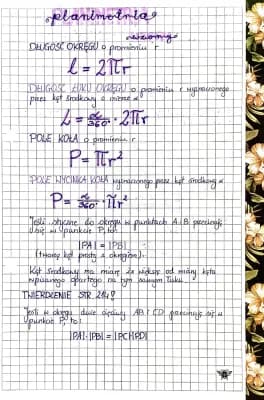 planimetria
wzory
DŁUGOŚĆ OKRĘGU o promieniu r
l = 2πr
DŁUGOŚĆ ŁUKU OKRĘGU o promieniu r wyznaczonego
przez kąt środkowy o mierze α
L = α/360° · 2πr
POLE KOŁA o promieniu r
P = πr²
POLE WYCINKA KOŁA wyznaczonego przez kąt środkowy α
P = α/360° · πr²
Jeśli styczne do okręgu w punktach A i B przecinają
się w punkcie P, to:
|PA| = |PB|
(tworzą kąt prosty z okręgiem).
Kąt środkowy ma miarę 2x większą od miary kąta
wpisanego opartego na tym samym łuku.
TWIERDZENIE STR. 214?
Jeśli w okręgu dwie cięciwy AB i CD przecinają się w
punkcie P, to:
|PA|·|PB| = |PC|·|PD|